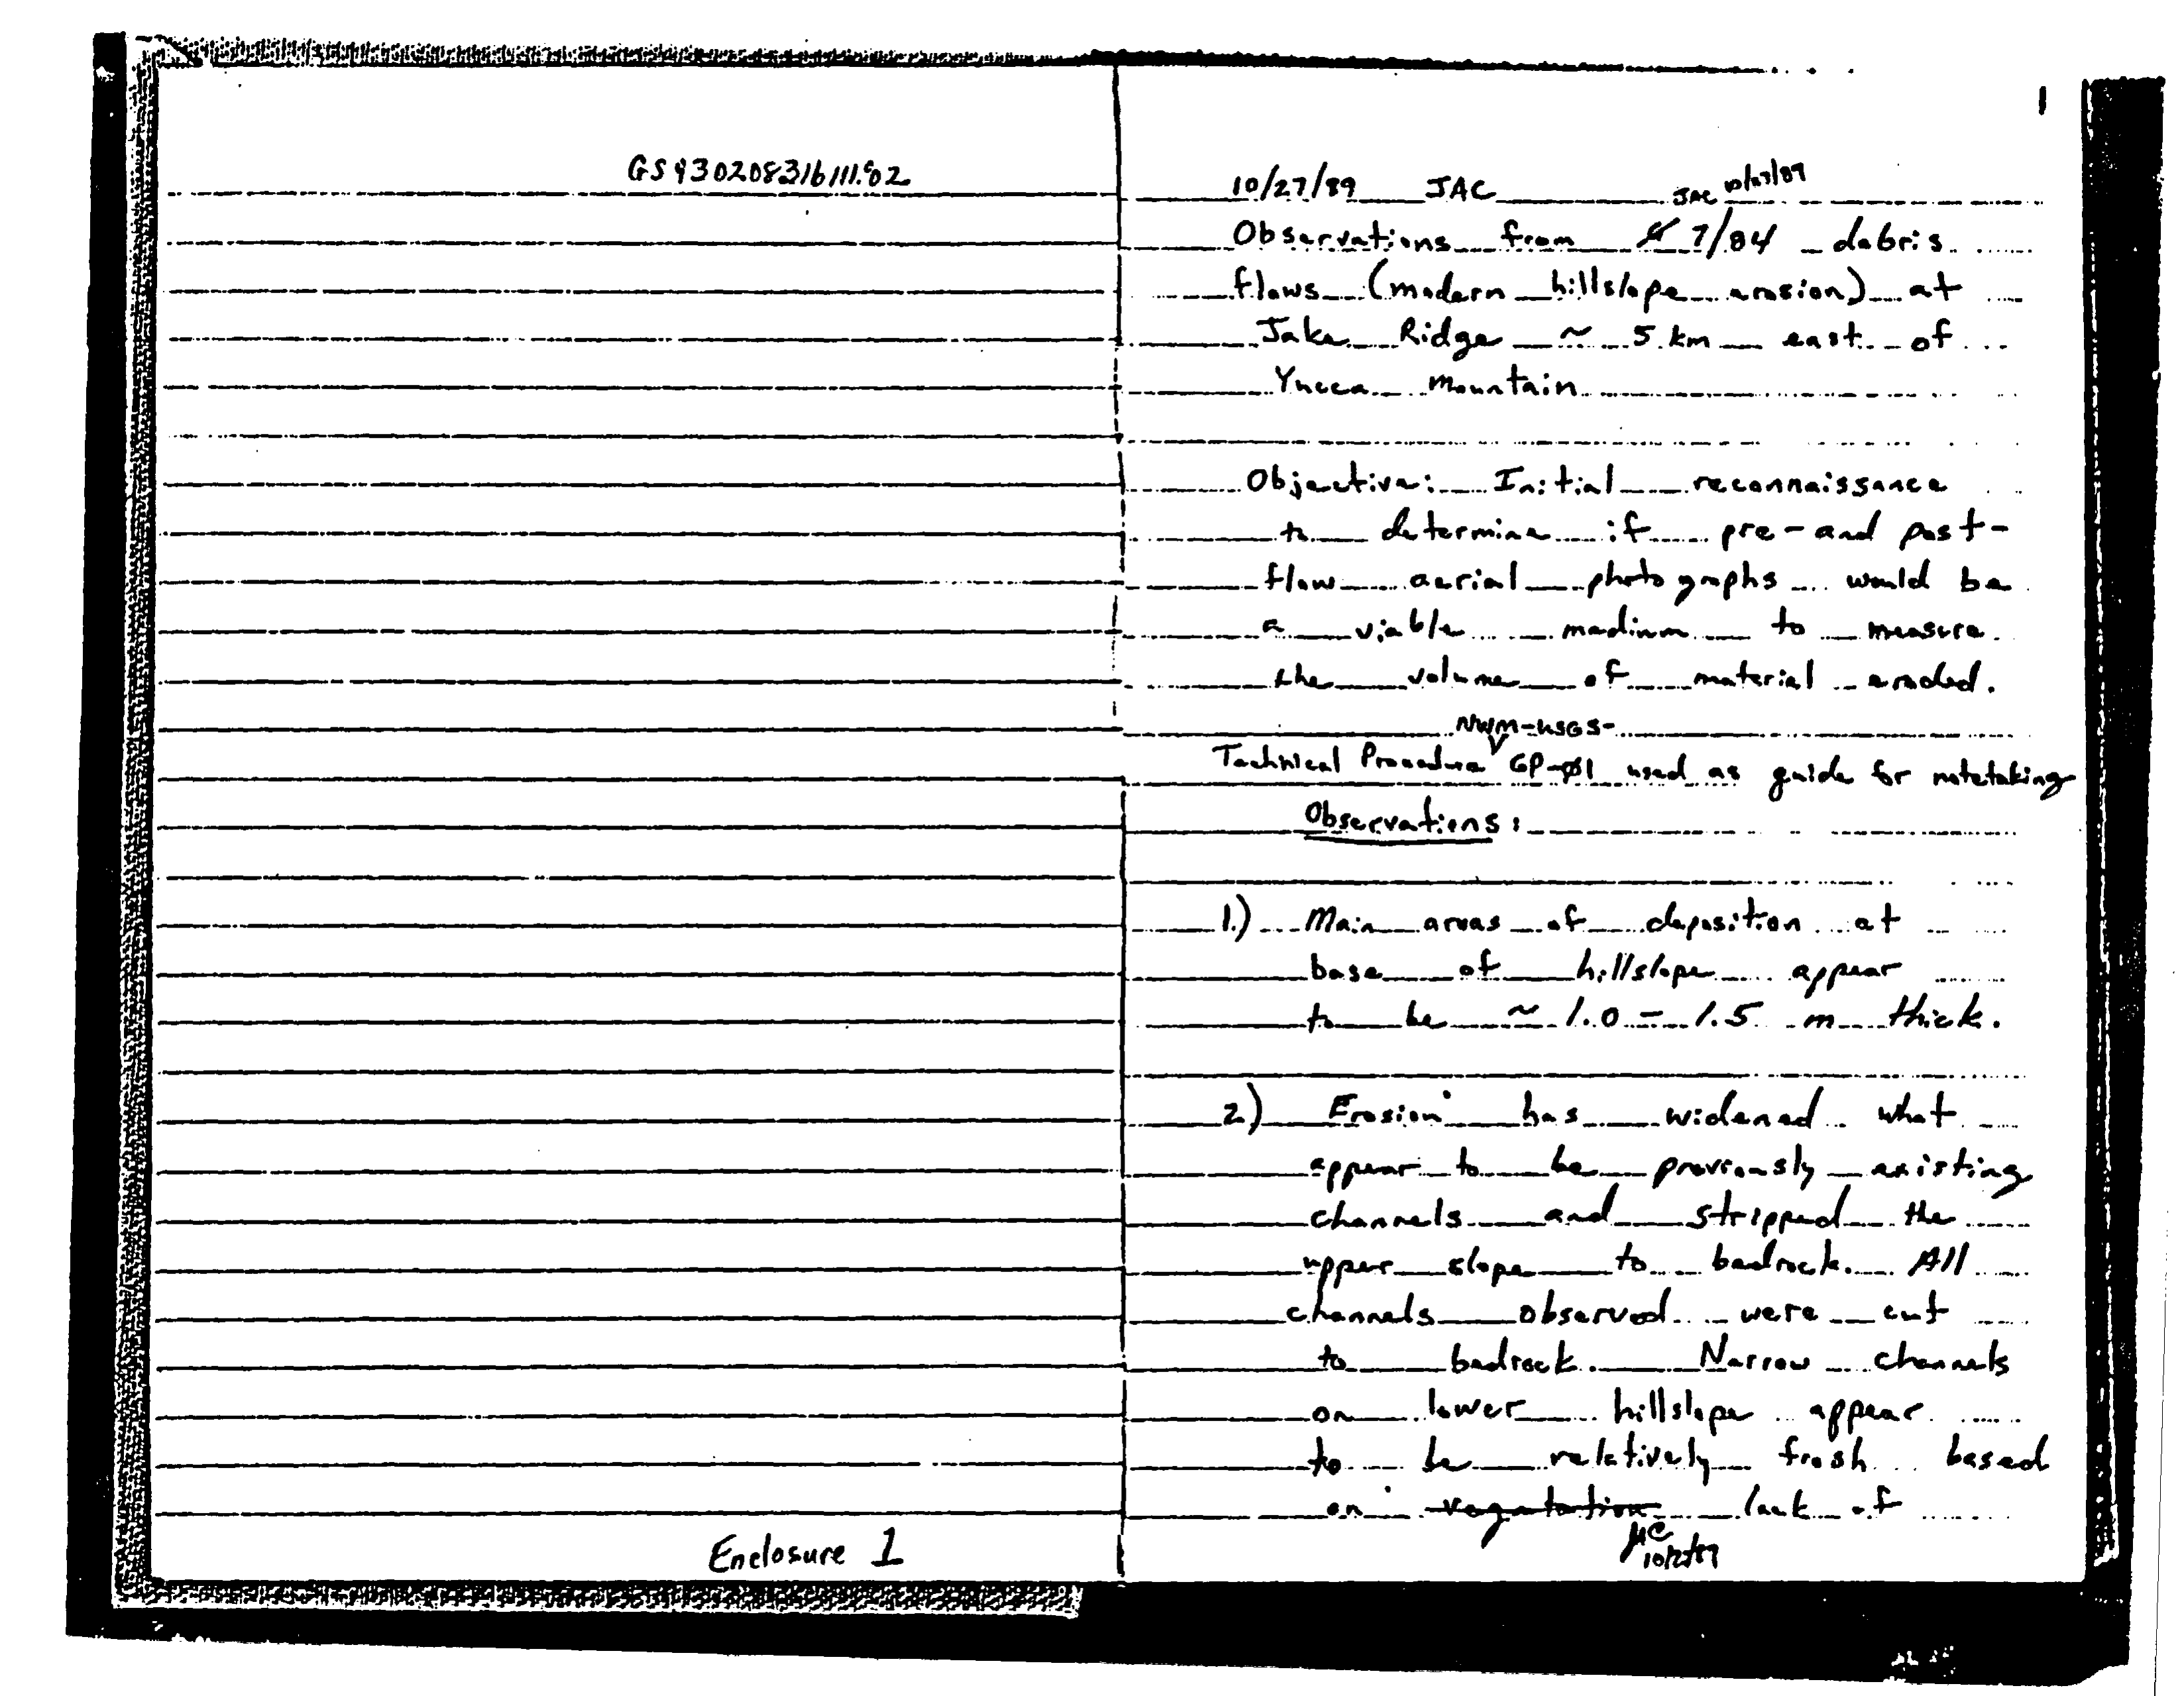 GS930208316111.002
Enclosure 1
1
10/27/89 JAC JAC 10/27/89
Observations from 7/84 debris
flows (modern hillslope erosion) at
Jake Ridge ~ 5 km east of
Yucca Mountain
Objective: Initial reconnaissance
to determine if pre-and post-
flow aerial photographs would be
a viable medium to measure
the volume of material eroded.
NWM-USGS-
Technical Procedure GP-01 used as guide for notetaking
Observations:
1.) Main areas of deposition at
base of hillslope appear
to be ~ 1.0 - 1.5 m thick.
2.) Erosion has widened what
appear to be previously existing
channels and stripped the
upper slope to bedrock. All
channels observed were cut
to bedrock. Narrow channels
on lower hillslope appear
to be relatively fresh based
on vegetation lack of